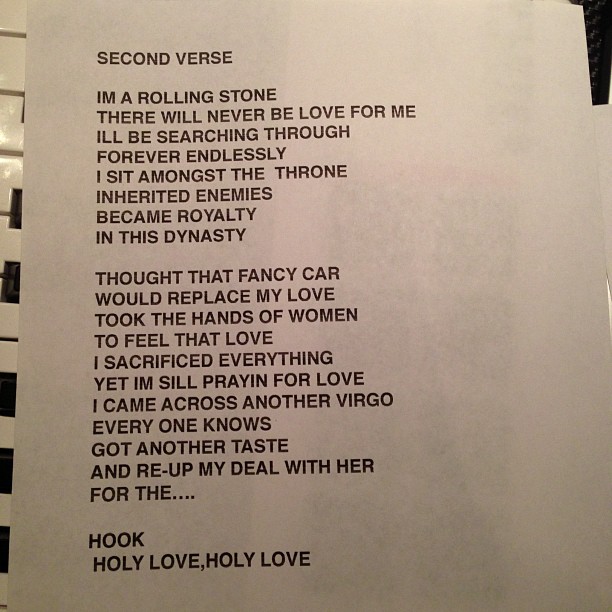 SECOND VERSE
IM A ROLLING STONE
THERE WILL NEVER BE LOVE FOR ME
ILL BE SEARCHING THROUGH
FOREVER ENDLESSLY
I SIT AMONGST THE THRONE
INHERITED ENEMIES
BECAME ROYALTY
IN THIS DYNASTY
THOUGHT THAT FANCY CAR
WOULD REPLACE MY LOVE
TOOK THE HANDS OF WOMEN
TO FEEL THAT LOVE
I SACRIFICED EVERYTHING
YET IM SILL PRAYIN FOR LOVE
I CAME ACROSS ANOTHER VIRGO
EVERY ONE KNOWS
GOT ANOTHER TASTE
AND RE-UP MY DEAL WITH HER
FOR THE....
HOOK
HOLY LOVE,HOLY LOVE